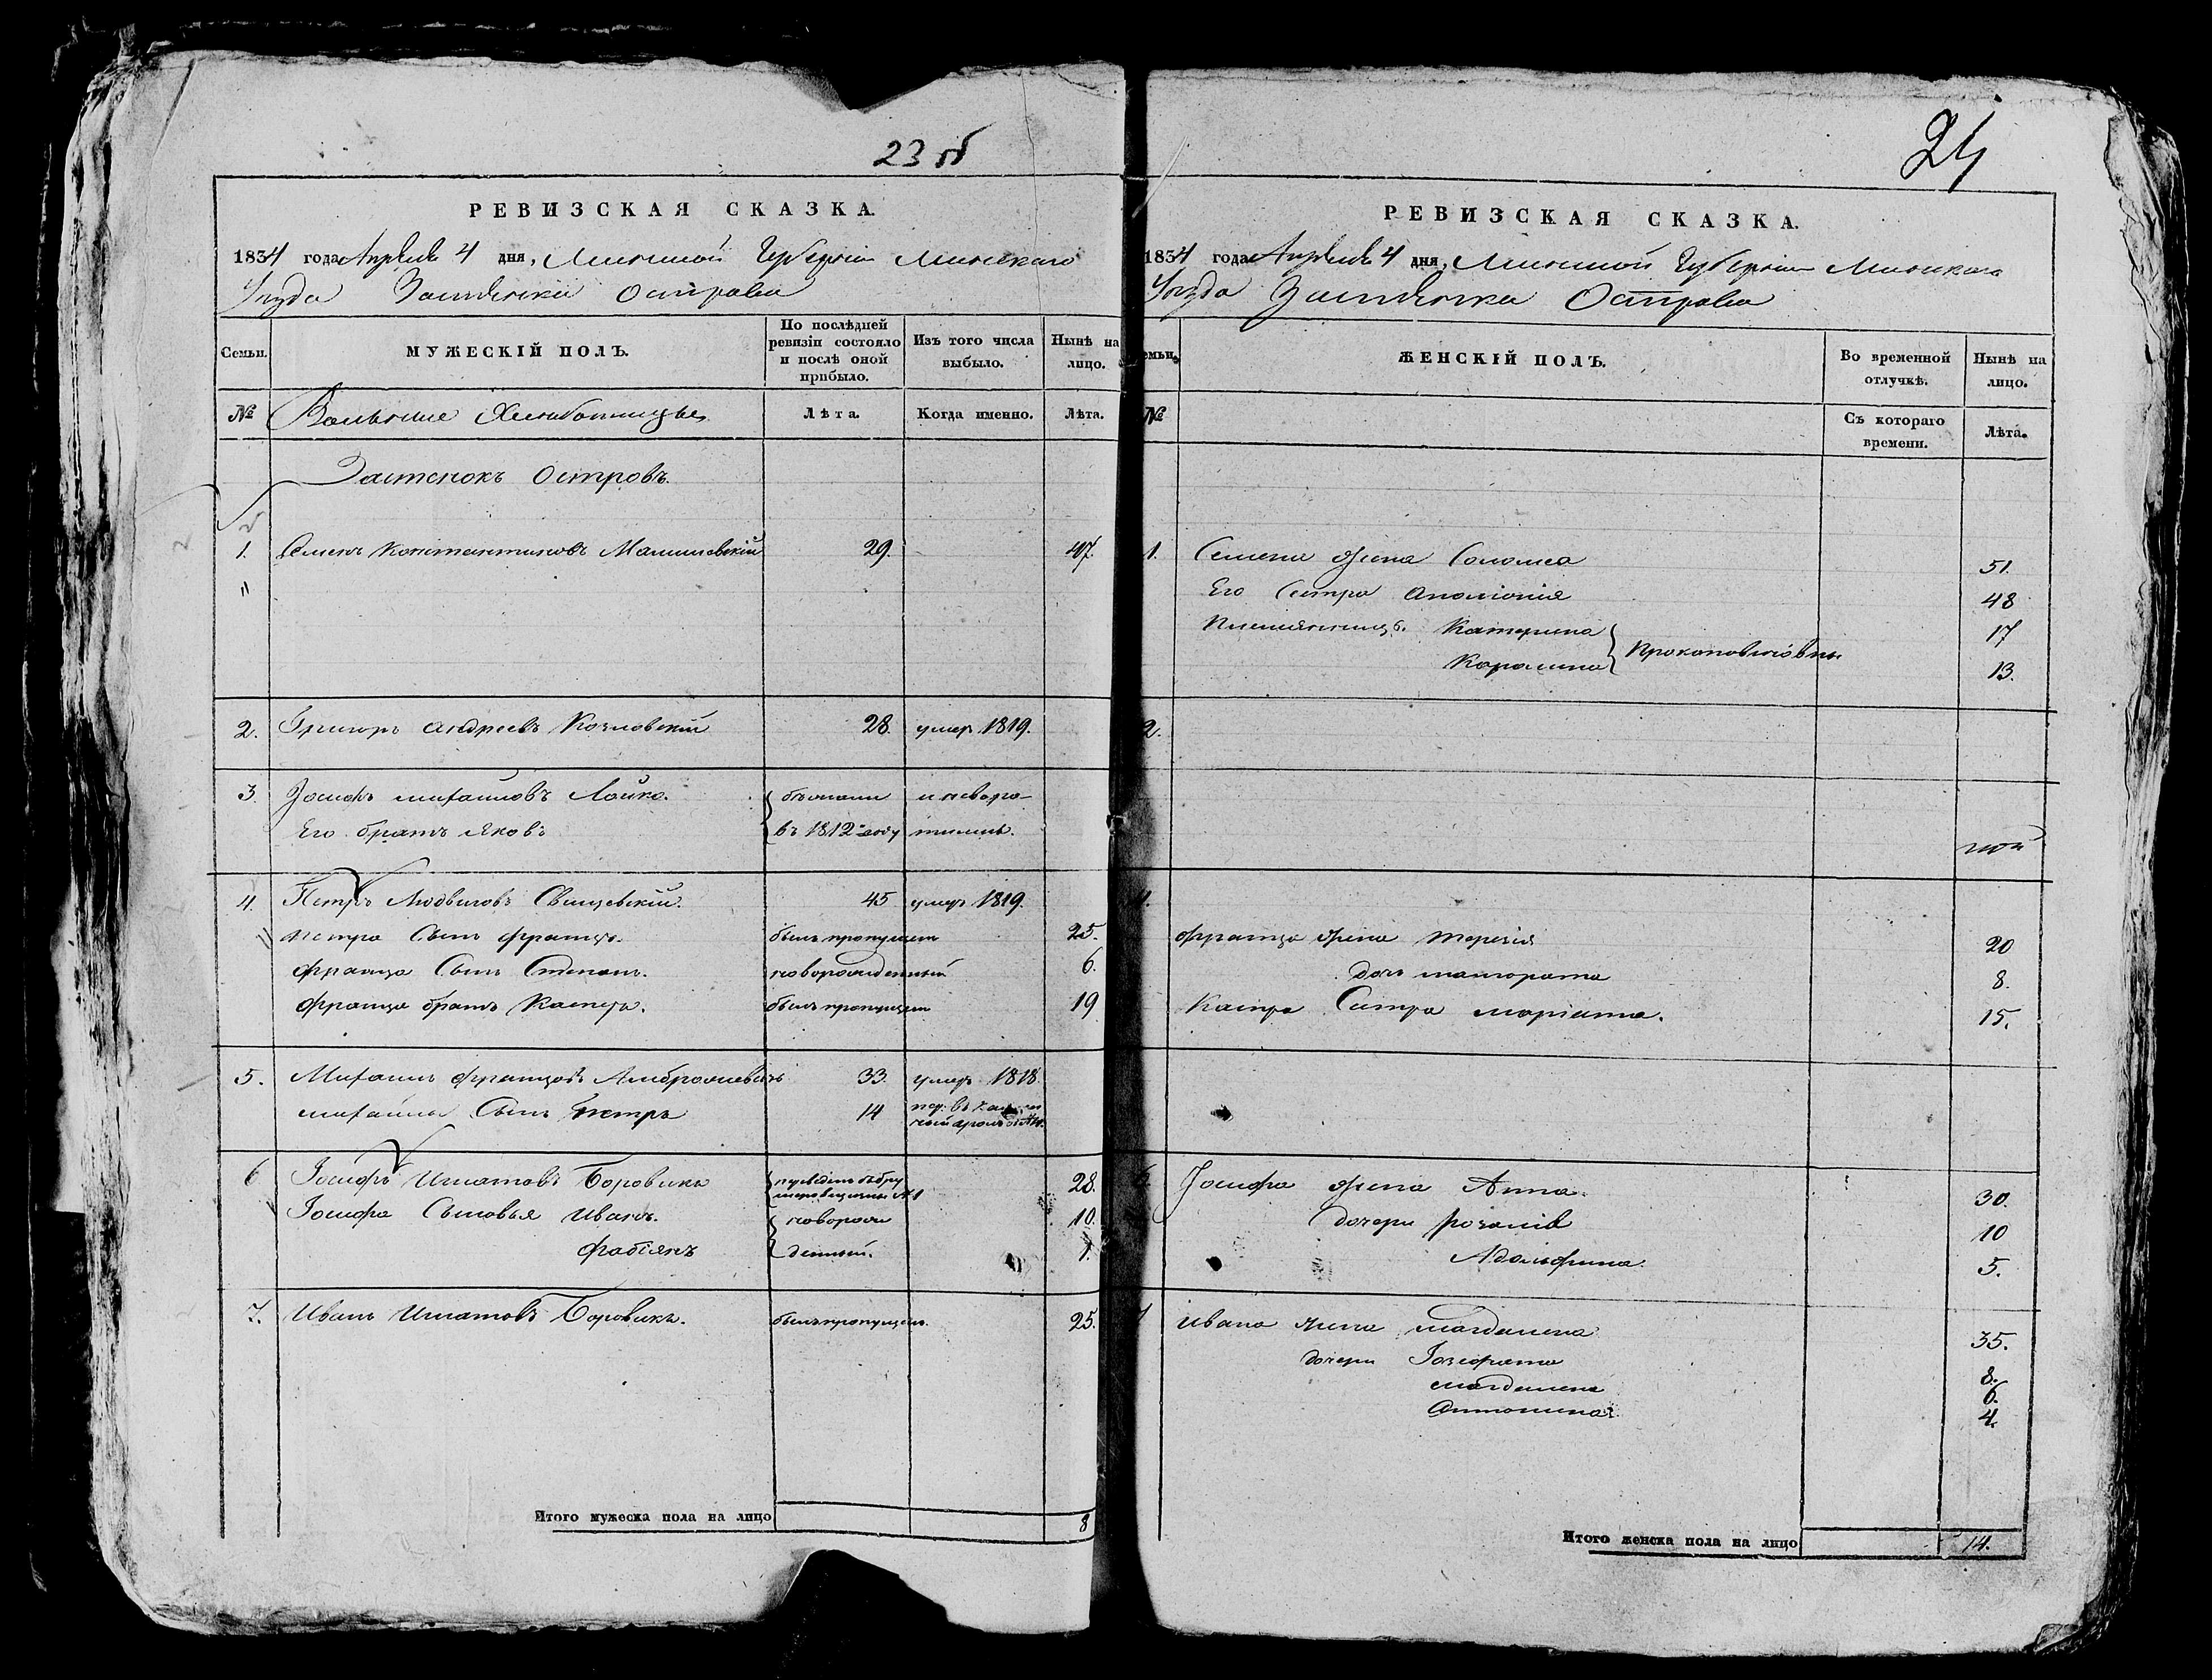 23 об
РЕВИЗСКАЯ СКАЗКА.
1834 года Апреля 4 дня, Минской Губернiи Минскаго
Уезда Застенка Острова
Семьи.
МУЖЕСКIЙ ПОЛЪ.
По послѣдней ревизiи состояло и послѣ оной прибыло.
Изъ того числа выбыло.
Нынѣ на лицо.
№
Вольные Хлебопашцы
Лѣта.
Когда именно.
Лѣта.
Застенокъ Островъ.
1. Семенъ Константиновъ Малишевскiй 29. 47.
2. Григоръ Андреевъ Козловскiй 28. умеръ 1819.
3. Iосифъ Михайловъ Лойко. бежали и невозра-
Его братъ Яковъ въ 1812 году тились.
4. Петръ Людвиговъ Свищевскiй. 45 умеръ 1819.
Петра Сынъ Францъ. былъ пропущенъ 25.
Франца Сынъ Степанъ. новорожденный 6.
Франца братъ Касперъ. былъ пропущенъ 19
5. Михаилъ Францовъ Амброжевичъ 33. умеръ 1818.
Михайла Сынъ Петръ 14
6 Iосифъ Игнатовъ Боровикъ 28.
Iосифа Сыновья Иванъ. новорож 10.
Фабiянъ денный. 1.
7. Иванъ Игнатовъ Боровикъ. былъ пропущен. 25.
Итого мужеска пола на лицо 8
24
РЕВИЗСКАЯ СКАЗКА.
1834 года Апреля 4 дня, Минской Губернiи Минскаго
Уезда Застенка Острова
ЖЕНСКIЙ ПОЛЪ.
Во временной отлучкѣ.
Нынѣ на лицо.
№
Съ котораго времени.
Лѣта.
1. Семена жена Соломея 51.
Его Сестра Аполiонiя 48
Племянницы. Катерина 17
Каролина Прокоповичовны 13.
2.
4.
Франца жена Терезiя 20
дочь Малгората 8.
Каспра Сестра Марiанна. 15.
6. Iосифа жена Анна. 30.
дочери Розалiя 10
Адольфина. 5.
7 Ивана жена Магдалена 35.
дочери Iозефата 8.
Магдалена 6.
Антонина. 4.
Итого женска пола на лицо 14.